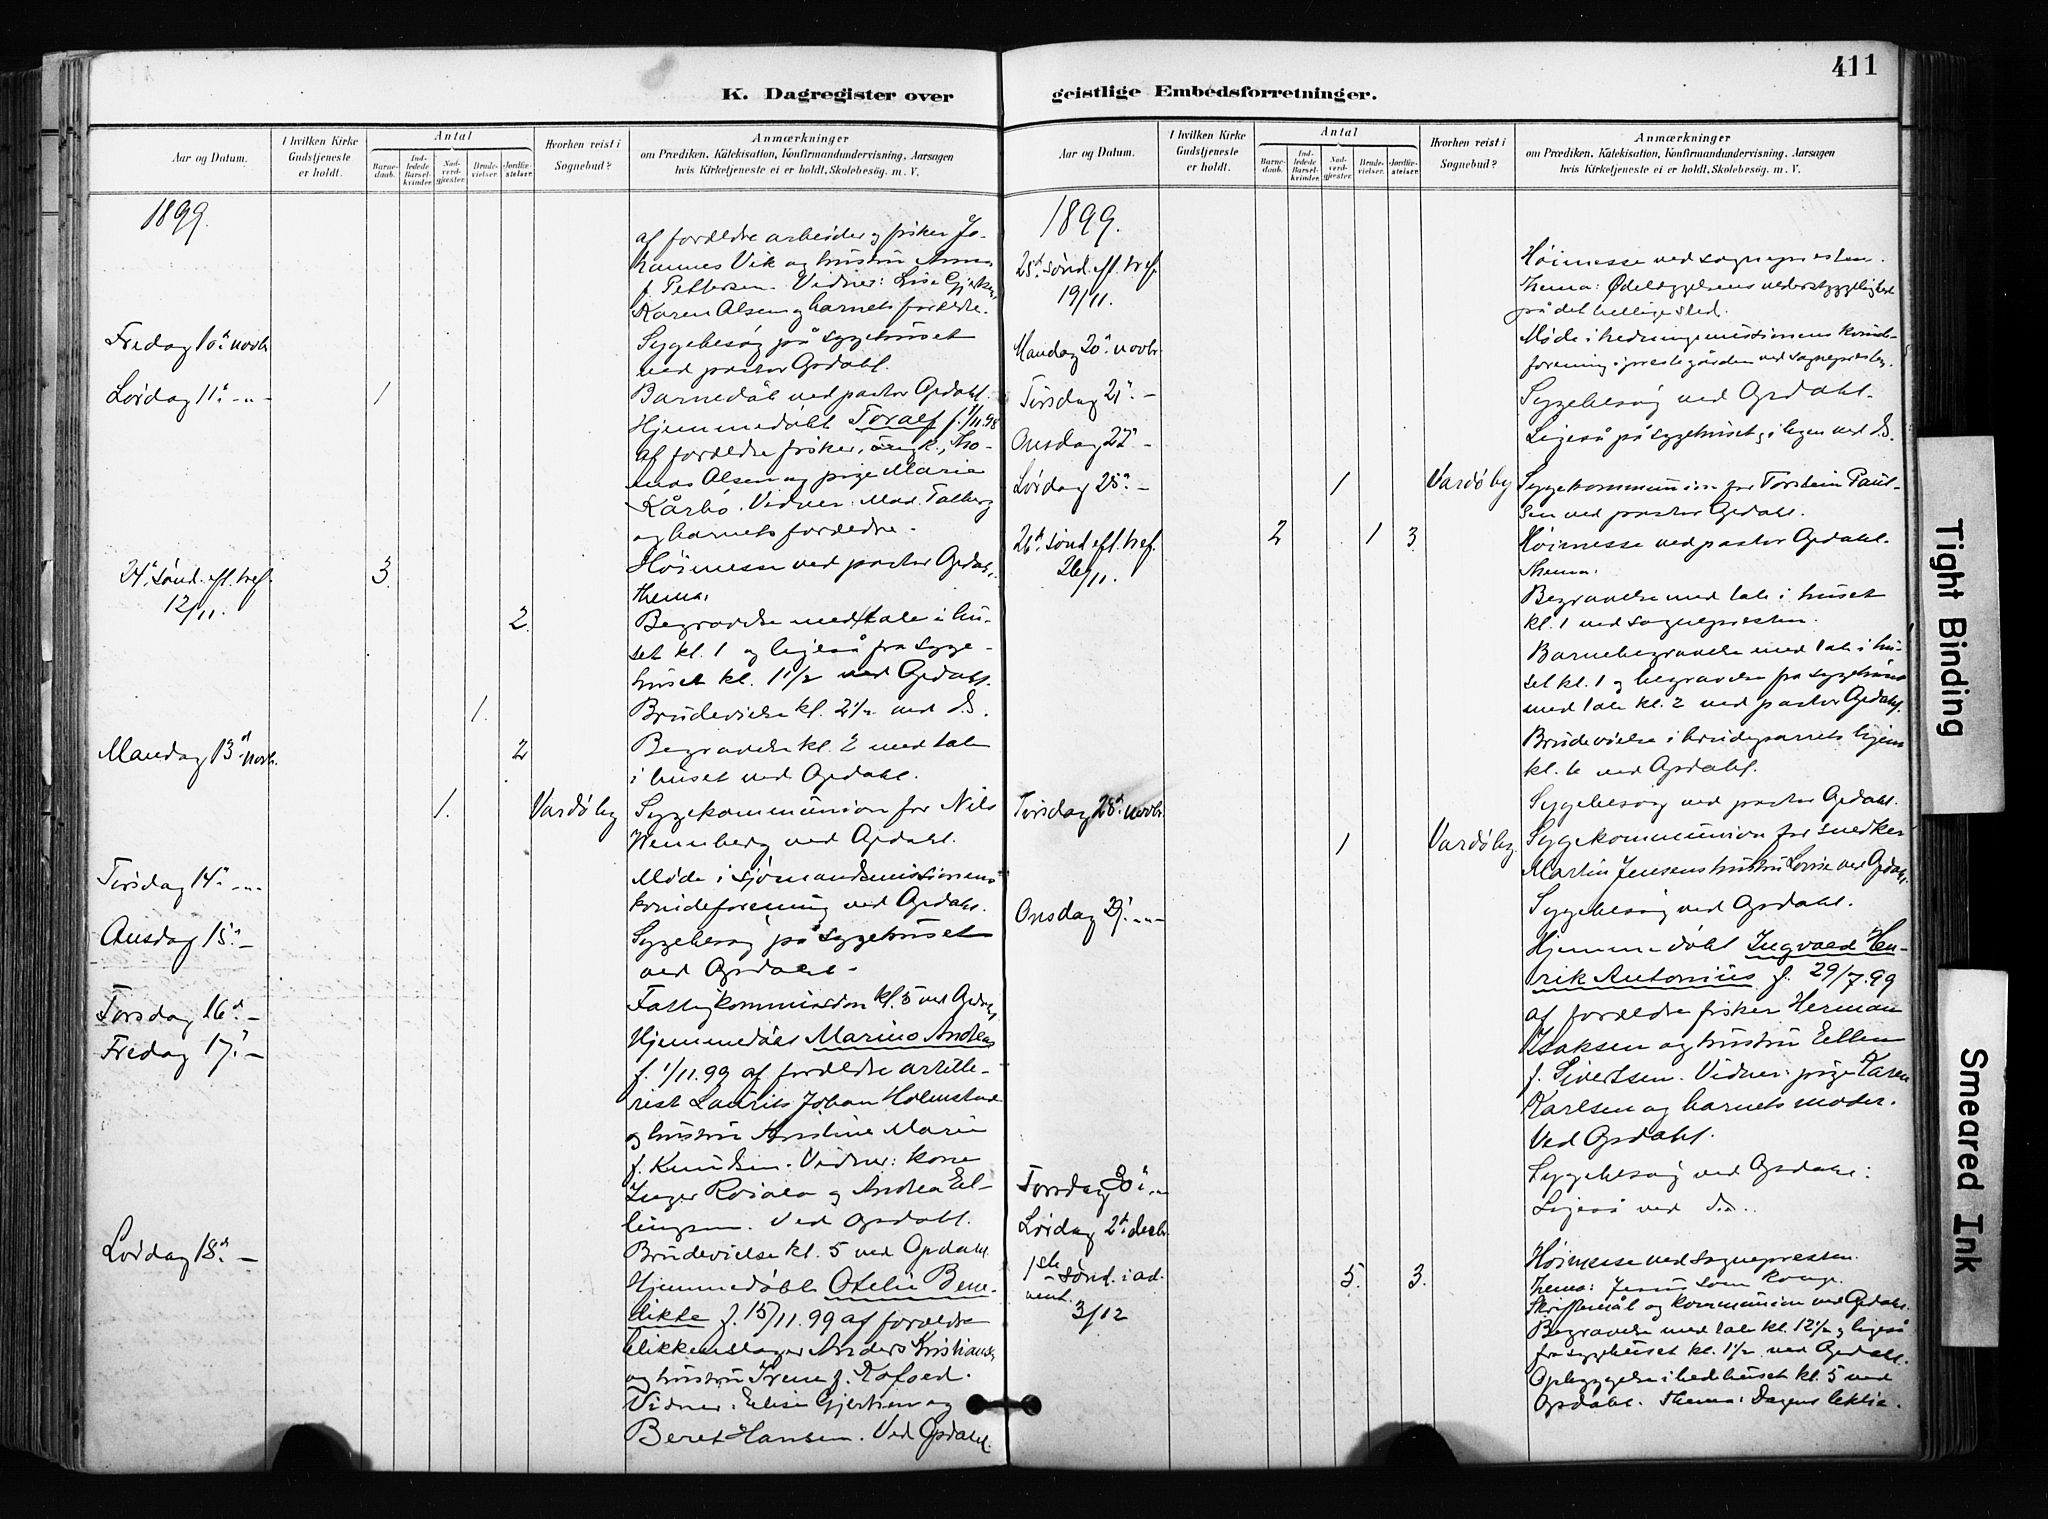 411
K. Dagregister over
geistlige Embedsforretninger.
Aar og Datum.
I hvilken Kirke Gudstjeneste er holdt.
Antal
Barnedaab.
Indledede Barselkvinder.
Nadverdgjæster.
Brudevielser.
Jordfæstelser.
Hvorhen reist i Sognebud?
Anmærkninger
om Prædiken, Katekisation, Konfirmandundervisning, Aarsagen
hvis Kirketjeneste ei er holdt, Skolebesög. m. V.
1899.
af forældre arbeider og fisker Jo-
hannes Vik og hustru Anna
f. Pettersen. Vidner: Lise Gjertsen
Karen Olsen og barnets forældre.
Fredag 10d novbr Sygebesøg på sygehuset
ved pastor Opdahl.
Lördag 11d -"- 1 Barnedåb ved pastor Opdahl.
Hjemmedøbt Toralf f. 1/11.98
af forældre fisker, ungk., Tho-
mas Olsen og pige Marie
Kårbö. Vidner: Mad. Falberg
og barnets forældre.
24d sönd. eft. tref. 3. Höimesse ved pastor Opdahl.
12/11. Thema:
2. Begravelse med tale i hu-
set kl. 1 og ligeså fra syge-
huset kl. 1 1/2 ved Opdahl.
1. Brudevielse kl. 2 1/2 ved ds.
Mandag 13d novbr. 2 Begravelse kl. 2 med tale
i huset ved Opdahl.
1. Vardø by Sygekommunion for Nils
Wennberg ved Opdahl.
Tirsdag 14d -"- Møde i sjømandsmissionens
kvindeforening ved Opdahl.
Onsdag 15d - Sygebesøg på sygehuset
ved Opdahl.
Torsdag 16d - Fattigkommission kl. 5 ved Opdahl
Fredag 17d - Hjemmedöbt Marino Andreas
f. 1/11.99 af forældre artille-
rist Laurits Johan Holmstad
og hustru Kristine Marie
f. Knudsen. Vidner: kone
Inger Rosalo og Andrea El-
lingsen. Ved Opdahl.
Lördag 18d - Brudevielse kl. 5 ved Opdahl.
Hjemmedöbt Otelie Bene-
dikte f. 15/11.99 af forældre
blikkenslager Anders Kristiansen
og hustru Irene f. Kofoed.
Vidner: Elise Gjertsen og
Beret Hansen. Ved Opdahl.
Aar og Datum.
I hvilken Kirke Gudstjeneste er holdt.
Antal
Barnedaab.
Indledede Barselkvinder.
Nadverdgjæster.
Brudevielser.
Jordfæstelser.
Hvorhen reist i Sognebud?
Anmærkninger
om Prædiken, Katekisation, Konfirmandundervisning, Aarsagen
hvis Kirketjeneste ei er holdt, Skolebesög. m. V.
1899.
25d sönd. eft. tref. Höimesse ved sognepresten.
19/11. Thema: Ødelæggelsens vederstyggelighed
på det hellige sted.
Mandag 20d novbr. Møde i hedningemissionens kvinde-
forening i prestegården ved sognepresten.
Tirsdag 21d - Sygebesøg ved Opdahl.
Onsdag 22d - Ligeså på sygehuset og i byen ved ds.
Lördag 25d - 1 Vardø by Sygekommunion for Torstein Paul-
sen ved pastor Opdahl.
26d sönd. eft. tref. 2 1 3. Höimesse ved pastor Opdahl.
26/11. Thema:
Begravelse med tale i huset
kl. 1 ved sognepresten.
Barnebegravelse med tale i hu-
set kl. 1 og begravelse fra sygehuset
med tale kl. 2 ved pastor Opdahl.
Brudevielse i brudeparrets hjem
kl. 6 ved Opdahl.
Tirsdag 28d novbr. Sygebesøg ved pastor Opdahl.
1 Vardø by. Sygekommunion for snedker
Martin Jensens hustru Lovise ved Opdahl.
Onsdag 29d -"- Sygebesøg ved Opdahl.
Hjemmedöbt Ingvald Hen-
rik Antonius f. 29/7.99
af forældre fisker Herman
Isaksen og hustru Ellen
f. Sivertsen. Vidner: pige Karen
Karlsen og barnets moder.
Ved Opdahl.
Torsdag 30d -"- Sygebesøg ved Opdahl.
Lördag 2d decbr. Ligeså ved ds.
1ste sönd. i ad- 5. 3. Höimesse ved sognepresten.
vent. Thema: Jesus som konge.
3/12 Skriftemål og kommunion ved Opdahl.
Begravelse med tale kl. 12 1/2 og ligeså
fra sygehuset kl. 1 1/2 ved Opdahl.
Opbyggelse i bedehuset kl. 5 ved
Opdahl. Thema: Dagens lektie.
Tight Binding
Smeared Ink